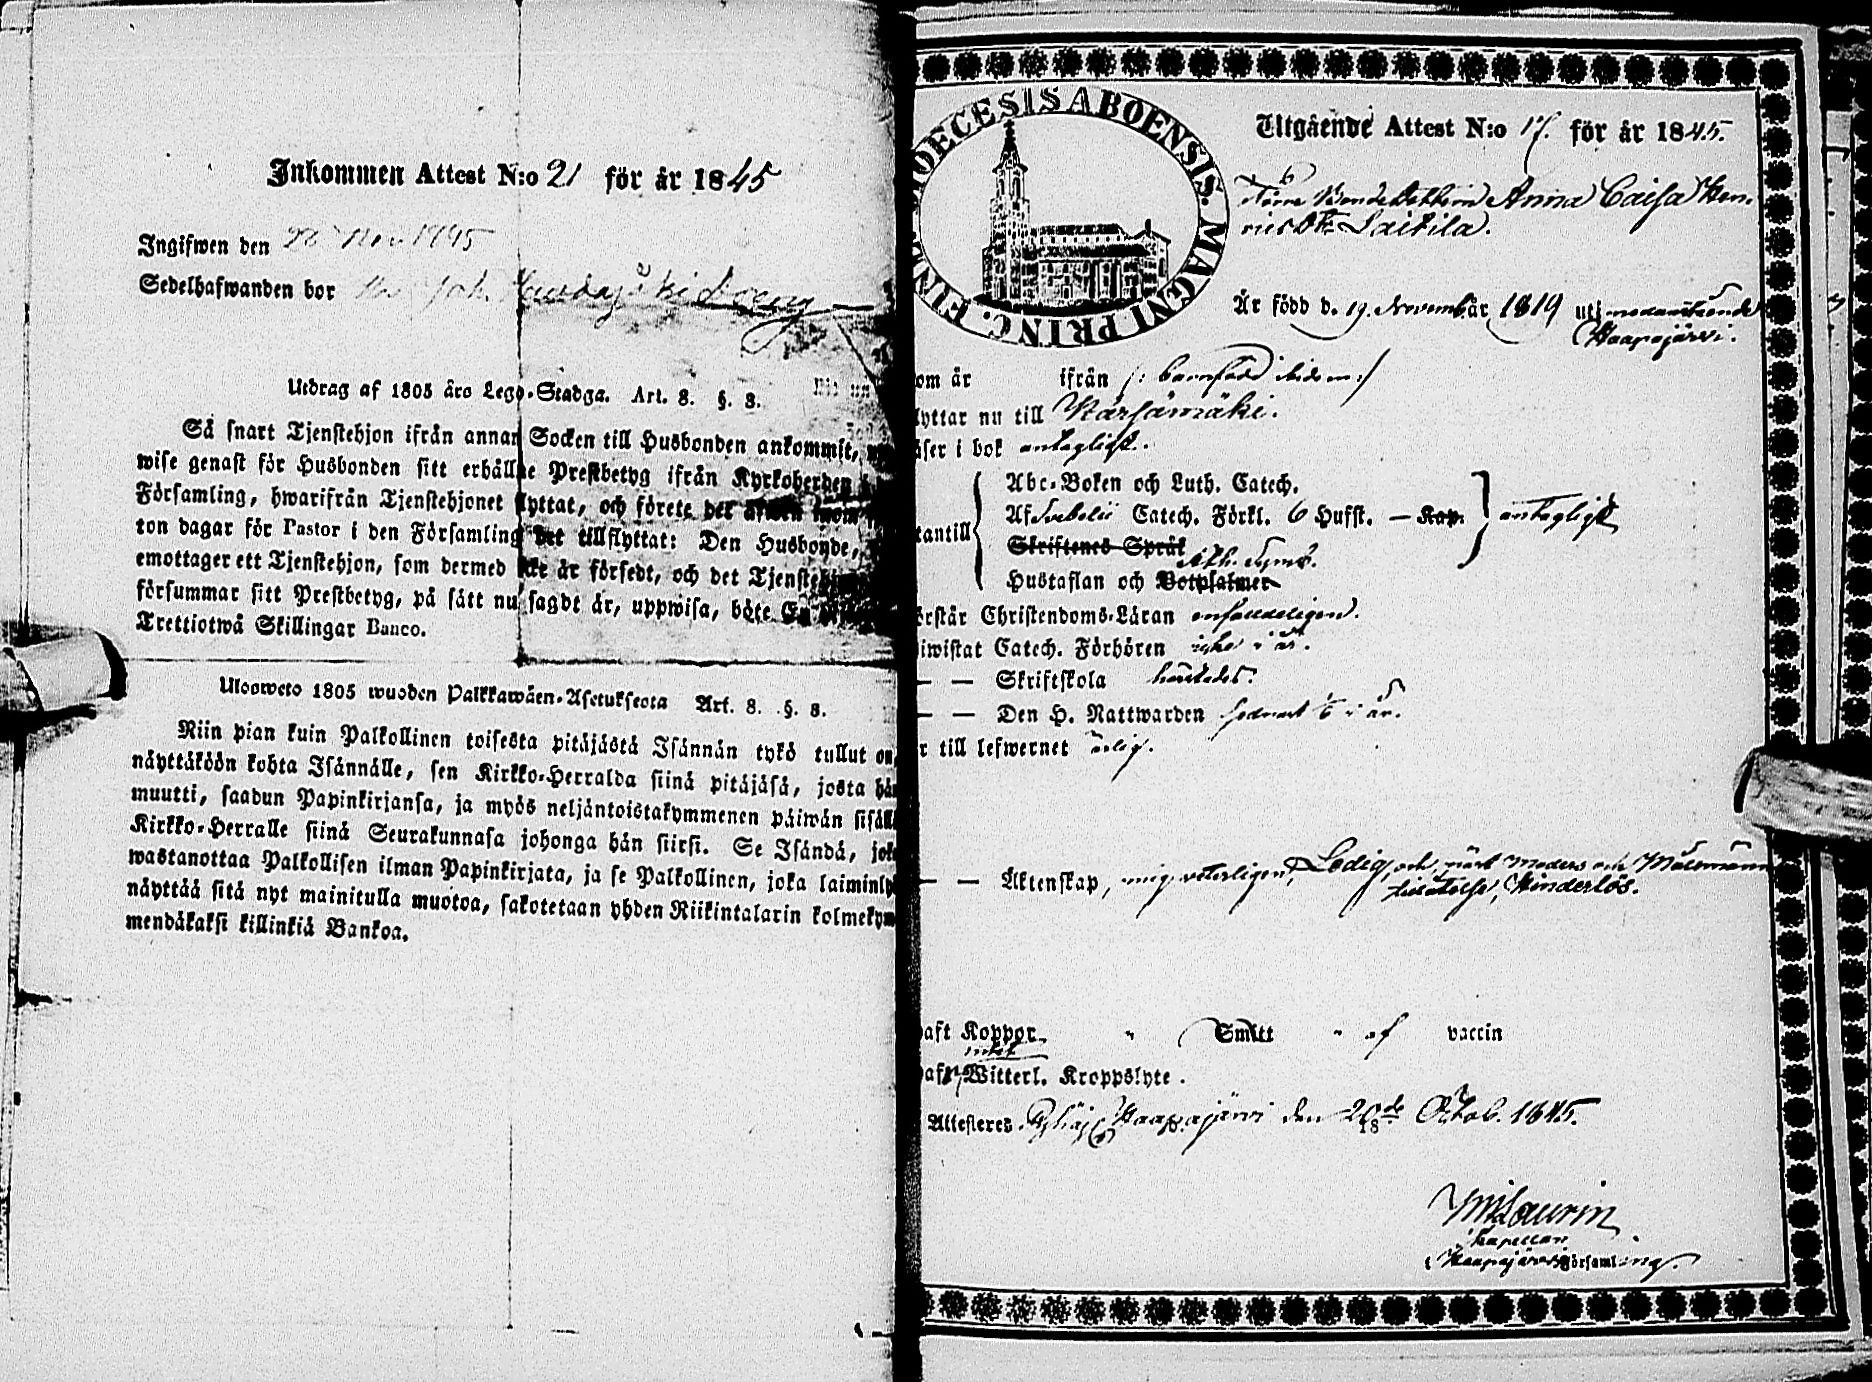 Inkommen Attest N:o 21 för år 1845
Ingifwen den 28 Nov 1845
Sedelhafwanden bor Joh.
Utdrag af 1805 års Lego-Stadga. Art. 8. §. 8.
Så snart Tjenstehjon ifrån annan Socken till Husbonden ankommit,
wise genast för Husbonden sitt erhållne Prestbetyg ifrån Kyrkoherden
Församling, hwarifrån Tjenstehjonet flyttat, och förete det
ton dagar för Pastor i den Församling det tillflyttat: Den Husbonde,
emottager ett Tjenstehjon, som dermed icke är försedt, och det
försummar sitt Prestbetyg, på sätt nu sagdt är, uppwisa, böte En
Trettiotwå Skillingar Banco.
Ulosweto 1805 wuoden Palkkawäen-Asetuksesta Art. 8. §. 8.
Niin pian kuin Palkollinen toisesta pitäjästä Isännän tykö tullut on,
näyttäköön kohta Isännälle, sen Kirkko-Herralda siinä pitäjäsä, josta hän
muutti, saadun Papinkirjansa, ja myös neljäntoistakymmenen päiwän sisäll
Kirkko-Herralle siinä Seurakunnasa johonga hän siirsi. Se Isändä, jok
wastanottaa Palkollisen ilman Papinkirjata, ja se Palkollinen, joka laiminly
näyttää sitä nyt mainitulla muotoa, sakotetaan yhden Riikintalarin kolmekym
mendäkaksi killinkiä Bankoa.
DIOECESIS ABOENSIS. MAGNI PRINC. FINL.
Utgående Attest N:o 17. för år 1845.
Förre Bondedottern Anna Caisa Hen-
ricsdr Laitila.
Är född d. 19. Novemb. år 1819 uti nedanstående
Haapajärvi.
om är ifrån /: barnfödd ibidem :/
lyttar nu till Kärsämäki.
äser i bok antagligt.
tantill
Abc-Boken och Luth. Catech.
Af Svebelii Catech. Förkl. 6 Hufst. — Kap.
Skriftenes Språk
Ath. Symb.
Hustaflan och Botpsalmer
antagligt
örstår Christendoms-Läran enfaldeligen.
iwistat Catech. Förhören icke i år.
— — Skriftskola
— — Den H. Nattwarden sednast i år.
r till lefwernet ärlig.
— — Äktenskap, mig veterligen, Ledig, och, mot Moders och Målsmann
tillåtelse, hinderlös.
aft Koppor " Smitt " af vaccin
intet
aft Witterl. Kroppslyte.
Attesteras Pyhäj. Haapajärvi den 20de Octob. 1845.
18
Laurin
Kapellan
i Haapajärvi Församling.